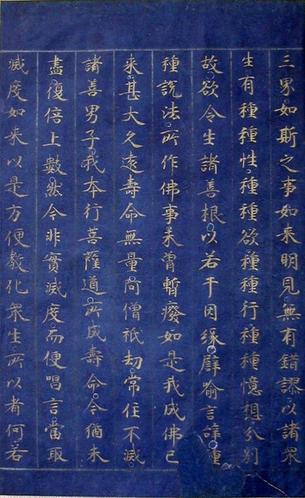 三界如斯之事如来明見無有錯謬以諸衆
生有種種性種種欲種種行種種憶想分别
故欲令生諸善根以若干因縁譬喻言辝種
種説法所作佛事未曾暫癈如是我成佛已
来甚大久遠壽命無量阿僧祇劫常住不滅
諸善男子我本行菩薩道所成壽命今猶未
盡復倍上數然今非實滅度而便唱言當取
滅度如来以是方便教化衆生所以者何若